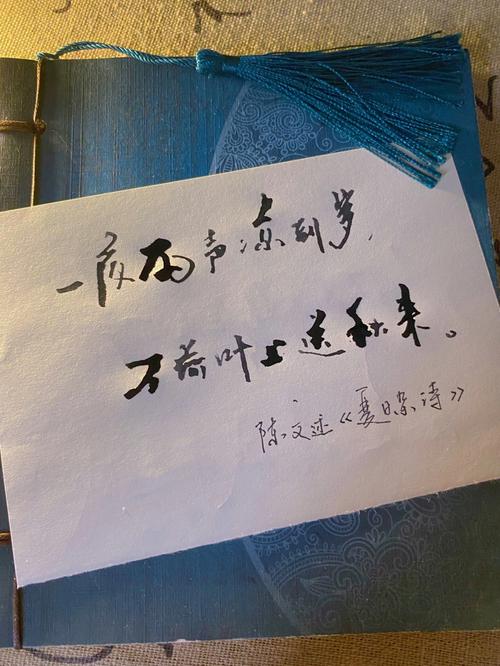 一夜雨声凉到梦，
万荷叶上送秋来。
陈文述《夏日杂诗》